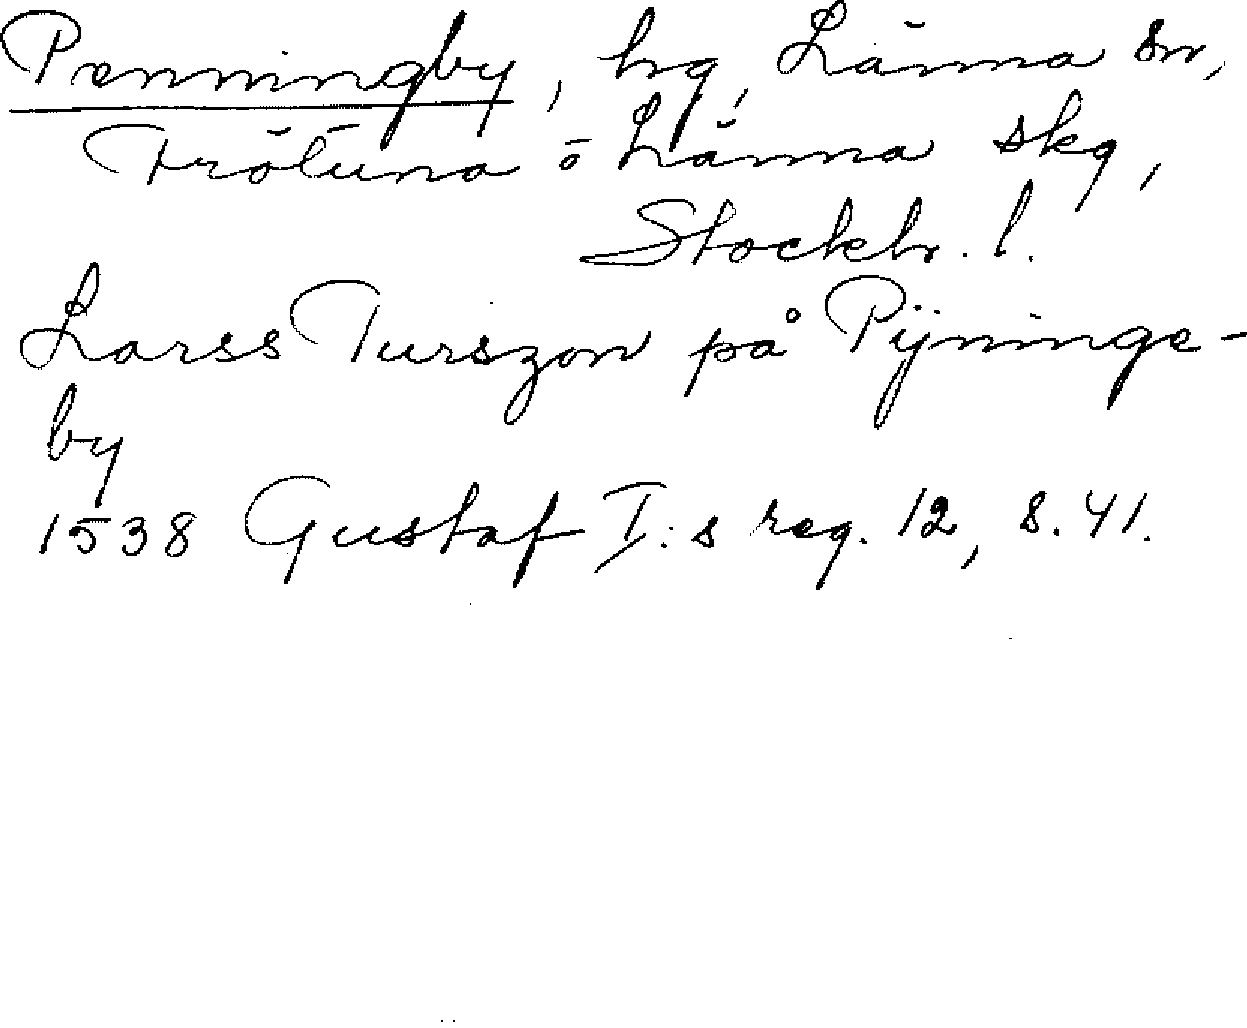 Penningby, hg, Länna sn,
Frötuna ō Länna skg,
Stockh. l.
Larss Turszon på Pijninge-
by
1538 Gustaf I:s reg. 12, s. 41.